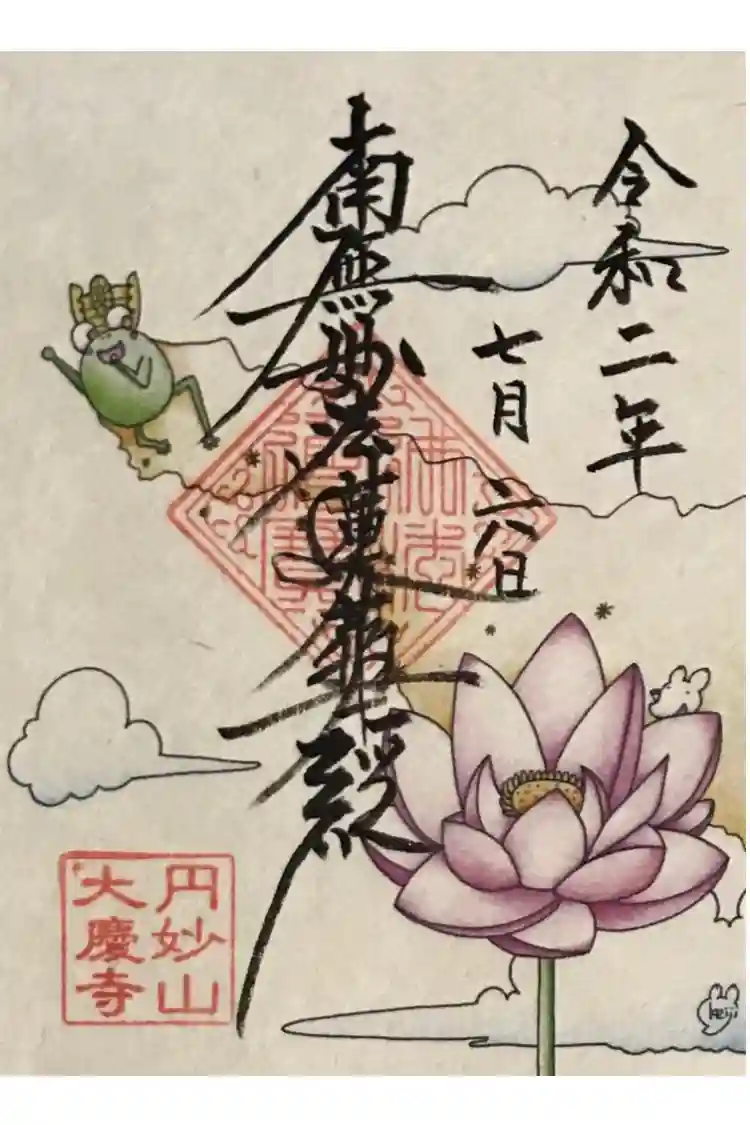 令和二年
七月六日
南無妙法蓮華經
佛法
僧寶
円妙山
大慶寺